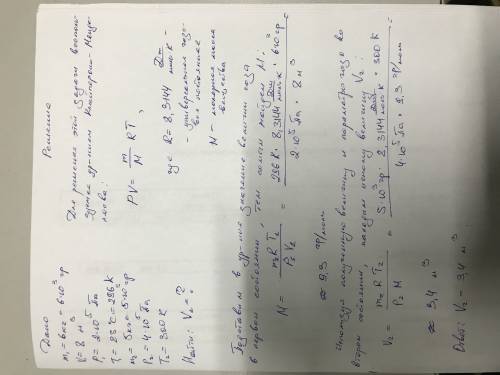 Дано
m₁ = 6кг = 6·10³ гр
V = 8 м³
P₁ = 2·10⁵ Па
T = 23°C = 296 K
m₂ = 5кг = 5·10³ гр
P₂ = 4·10⁵ Па
T₂ = 300 K
Найти: V₂ = ?
Решение
Для решения этой задачи восполь-
зуемся ур-нием Клайперона-Менде-
леева:
PV = m/M RT,
где R = 8,3144 Дж/моль·K –
- универсальная газо-
вая постоянная
M - молярная масса
вещества
Подставим в ур-ние значение величин газа
в первом состоянии, тем самым найдем M:
M = m₁RT₂/P₂V₂ = 296 K · 8,3144 Дж/моль·K · 6·10³ гр/2·10⁵ Па · 8 м³
≈ 9,3 гр/моль
Используя полученную величину и параметры газа во
втором состоянии, находим искомую величину V₂:
V₂ = m₂RT₂/P₂M = 5·10³ гр · 8,3144 Дж/моль·K · 300 K/4·10⁵ Па · 9,3 гр/моль
≈ 3,4 м³
Ответ: V₂ = 3,4 м³